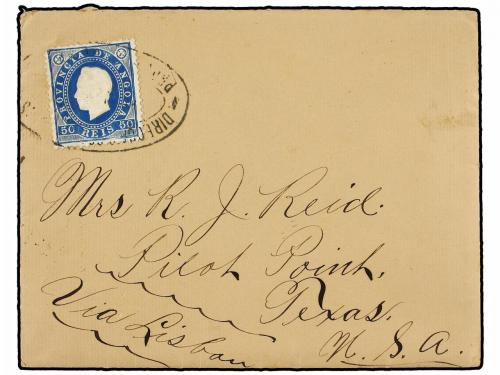 PROVINCIA DE ANGOLA
50 REIS 50
Mrs R. J. Reid.
Pilot Point,
Texas.
Via Lisbon
U. S. A.